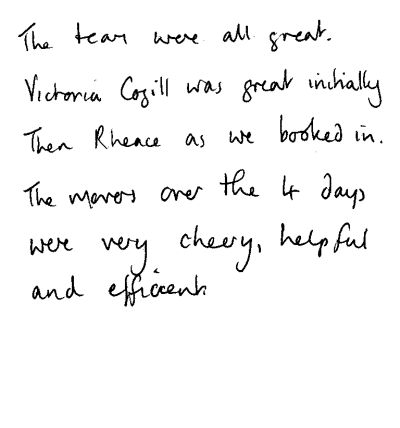 The team were all great.
Victoria Cogill was great initially
Then Rheace as we booked in.
The movers over the 4 days
were very cheery, helpful
and efficient